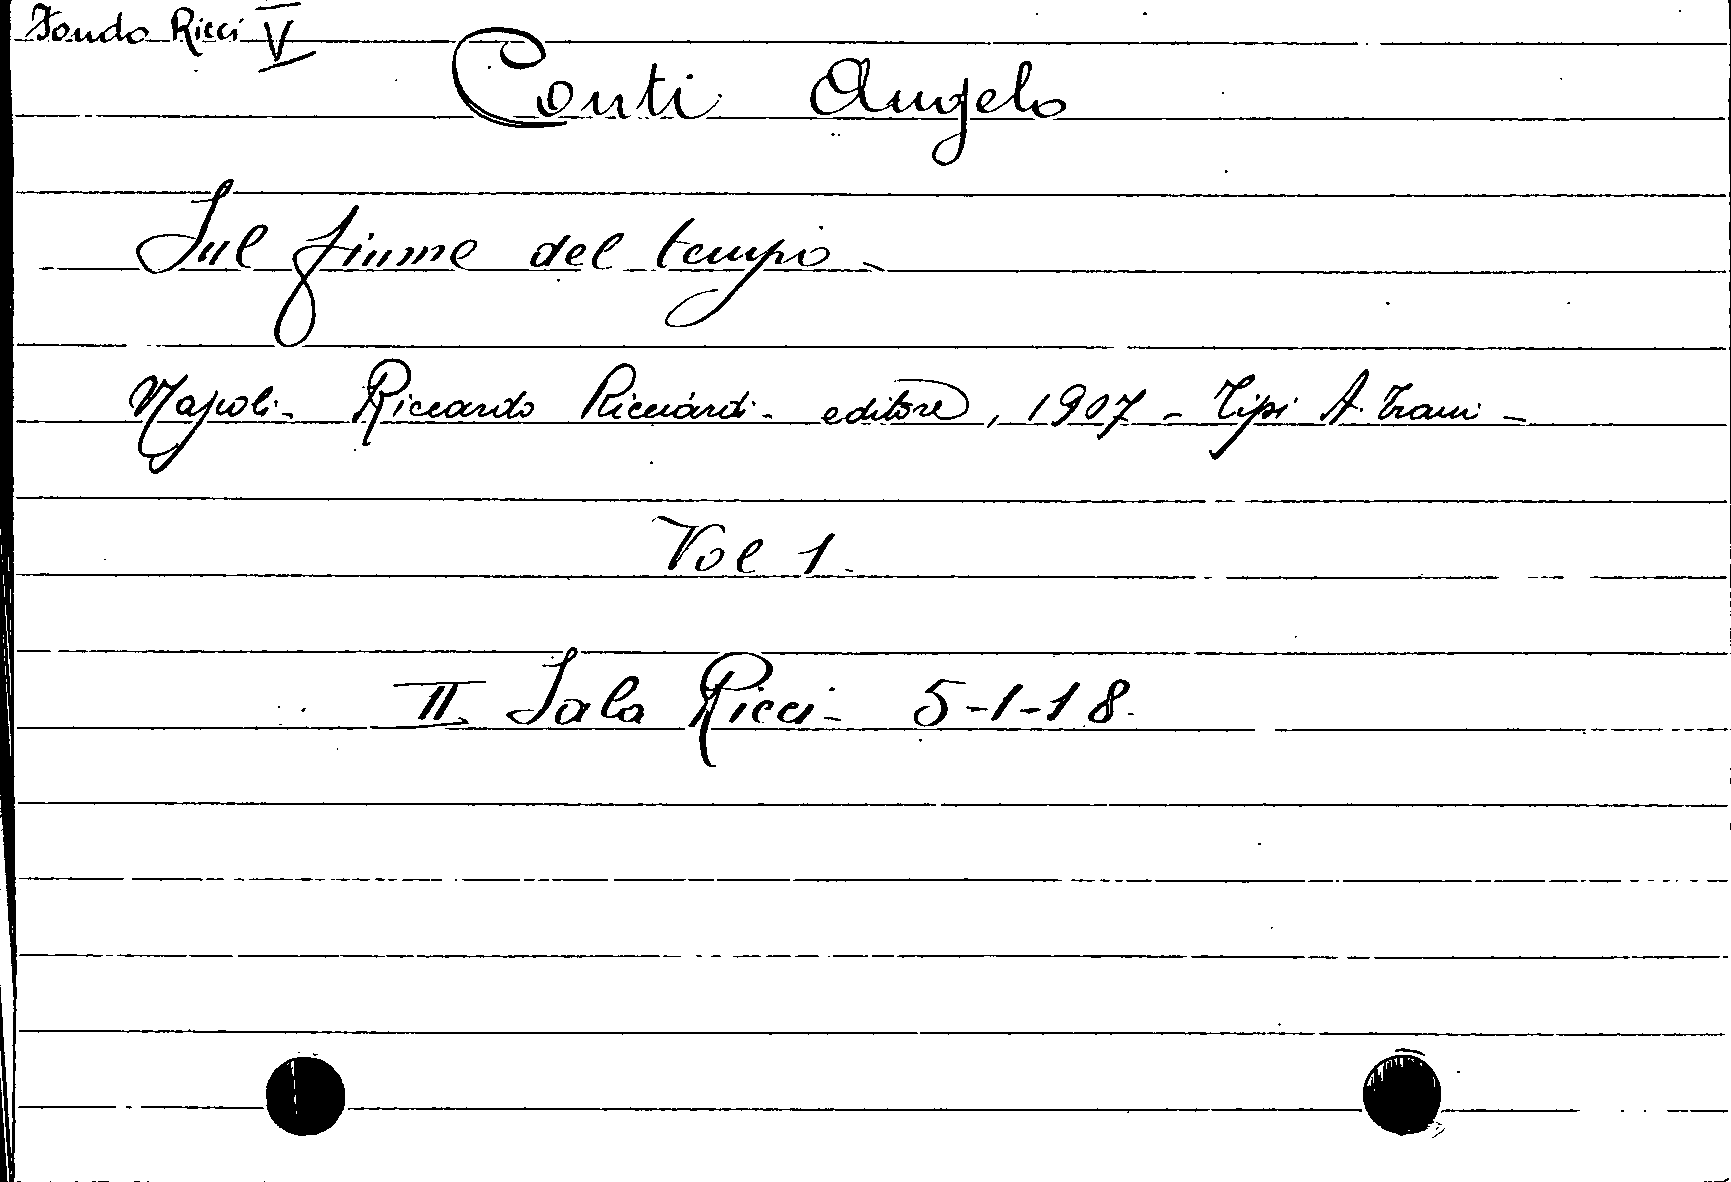 Fondo Ricci V
Conti Angelo
Sul fiume del tempo -
Napoli - Riccardo Ricciardi - editore, 1907 - Tipi A. Trani -
Vol 1.
II Sala Ricci - 5-1-18.